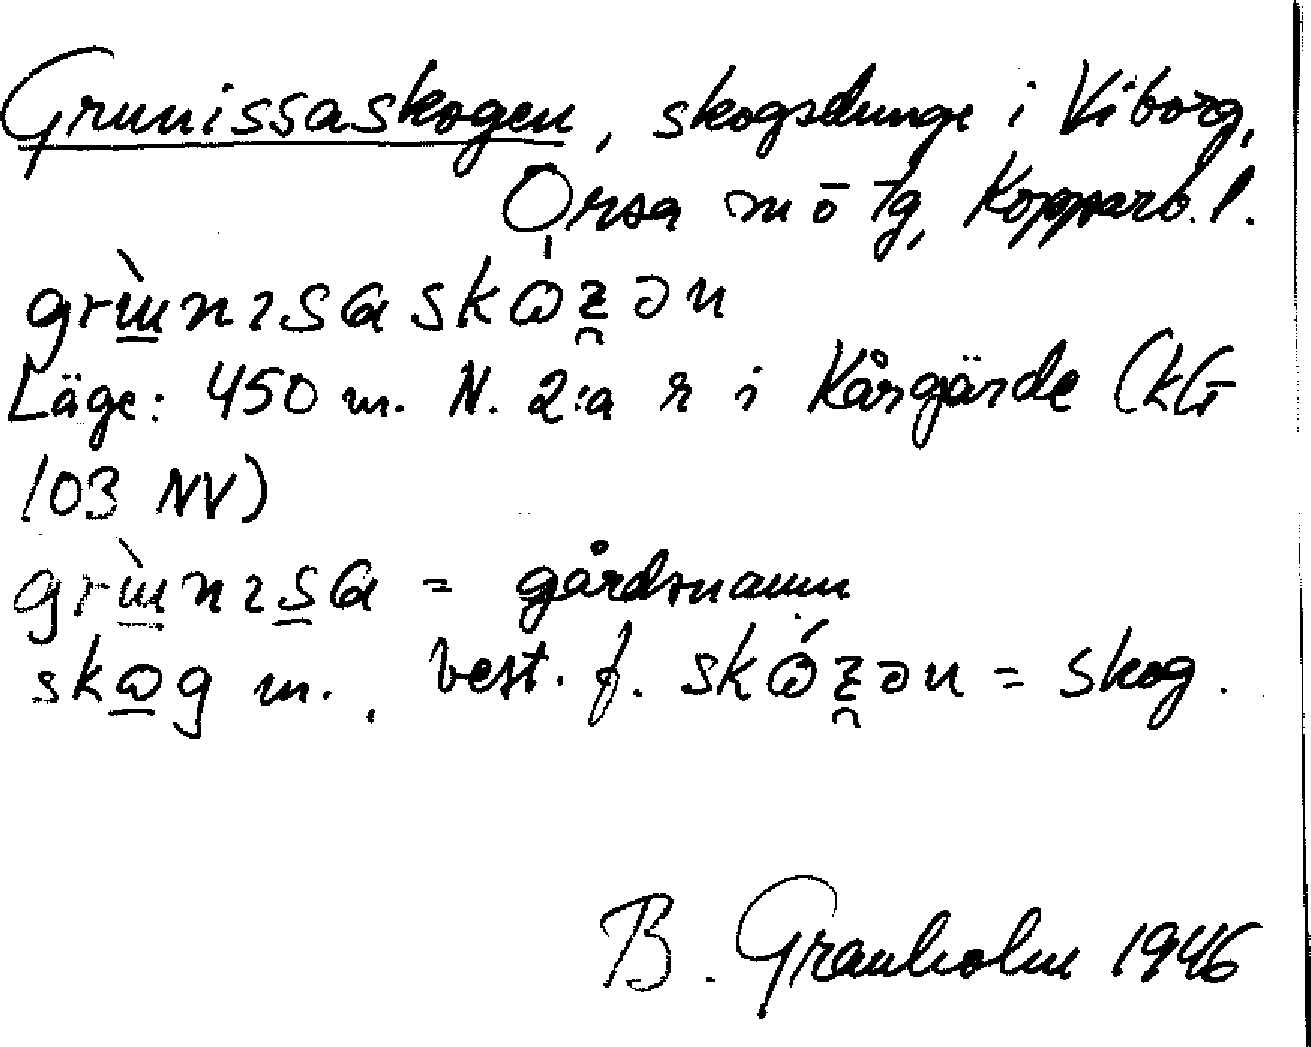 Grunissaskogen, skogsdunge i Viborg,
Orsa sn o tg, Kopparb. l.
grɯ̀nısɑskώʓən
Läge: 450 m. N. 2:a r i Kårgärde (kG
103 NV)
grɯ̀nısɑ = gårdsnamn
skωg m., best. f. skώʓən = skog.
B. Granholm 1946